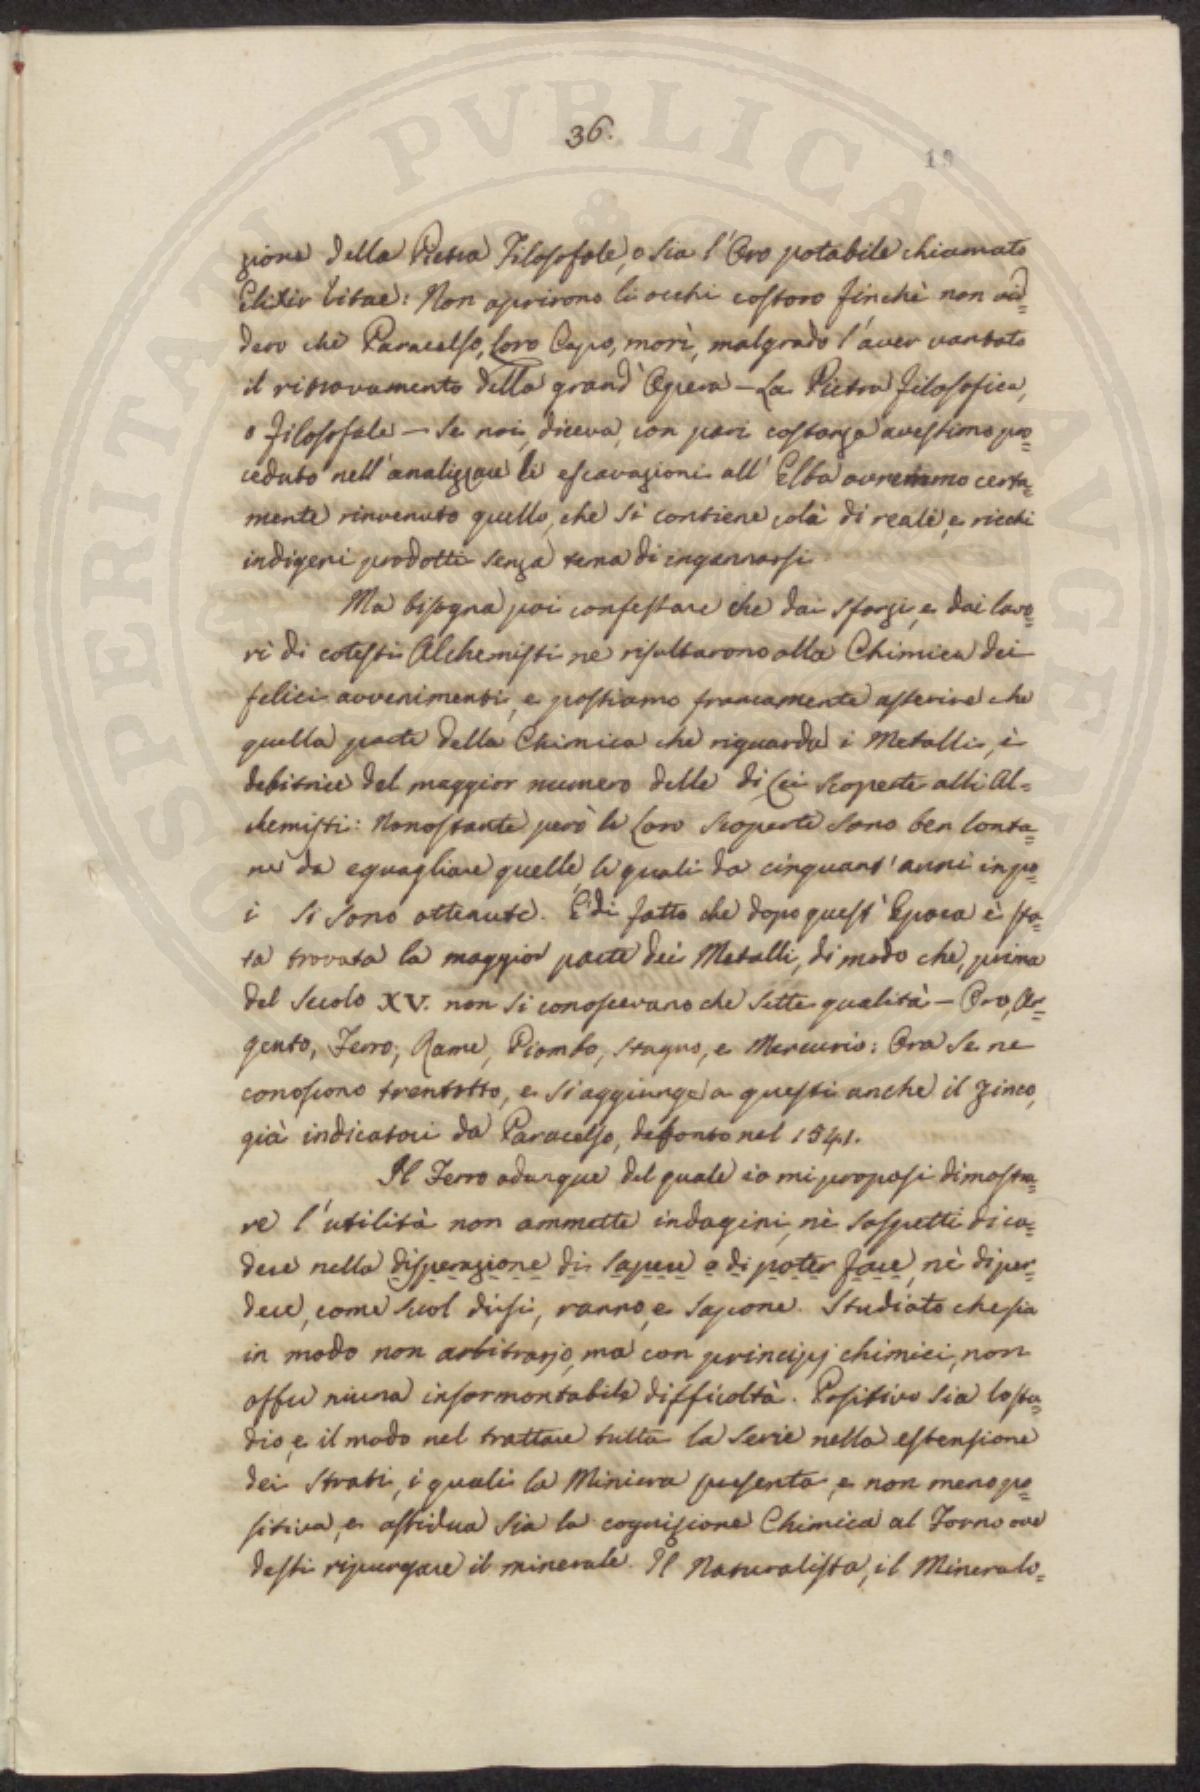 36.
19
zione della Pietra Filosofale, o sia l'Oro potabile chiamato
Elixir Vitae: Non aprirono li occhi costoro finchè non vid=
dero che Paracelso, loro Capo, morì, malgrado l'aver vantato
il ritrovamento della grand'Opera — La Pietra filosofica,
o filosofale — Se noi, diceva, con pari costanza avessimo pro=
ceduto nell'analizzare le escavazioni all'Elba avremmo certa=
mente rinvenuto quello, che si contiene colà di reali, e ricchi
indigeni prodotti senza tema di ingannarsi.
Ma bisogna poi confessare che dai sforzi, e dai lavo=
ri di cotesti Alchemisti ne risultarono alla Chimica dei
felici avvenimenti, e possiamo francamente asserire che
quella parte della Chimica che riguarda i Metalli, è
debitrice del maggior numero delle di Lei scoperte alli Al=
chemisti: Nonostante però le loro scoperte sono ben lonta=
ne da eguagliare quelle le quali da cinquant'anni in po=
i si sono ottenute. È di fatto che dopo quest'Epoca è sta=
ta trovata la maggior parte dei Metalli, di modo che, prima
del Secolo XV. non si conoscevano che sette qualità — Oro, Ar=
gento, Ferro, Rame, Piombo, Stagno, e Mercurio: Ora se ne
conoscono trentotto, e si aggiunge a questi anche il Zinco,
già indicatoci da Paracelso, defonto nel 1541.
Il Ferro adunque del quale io mi proposi dimostra=
re l'utilità non ammette indagini, nè sospetti di ca=
dere nella disperazione di sapere o di poter fare, nè di per=
dere, come suol dirsi, ranno, e sapone. Studiato che sia
in modo non arbitrario, ma con principj chimici, non
offre niuna insormontabile difficoltà. Positivo sia lo stu=
dio, e il modo nel trattare tutta la serie nella estensione
dei strati, i quali la Miniera presenta, e non meno po=
sitiva, e assidua sia la cognizione Chimica al Forno ove
dessi ripurgare il minerale. Il Naturalista, il Mineralo=
SPERITATI PVBLICAE AVGEN